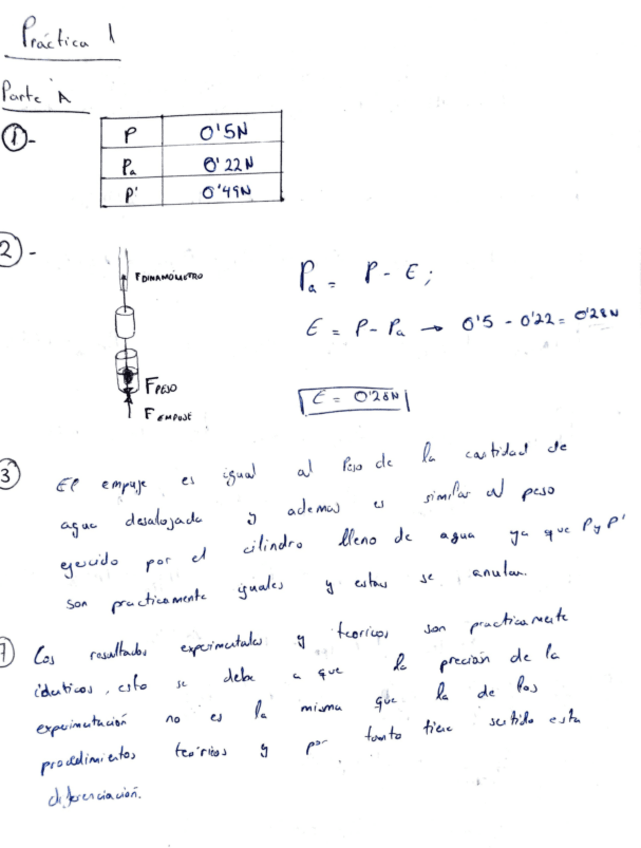 Práctica 1
Parte A
①-
P 0'5N
Pa 0'22N
P' 0'49N
②-
F DINAMÓMETRO
F PESO
F EMPUJE
Pa = P - E;
E = P - Pa → 0'5 - 0'22 = 0'28N
E = 0'28N
③ El empuje es igual al Peso de la cantidad de
agua desalojada y ademas es similar al peso
ejercido por el cilindro lleno de agua ya que P y P'
son practicamente iguales y estas se anulan.
Los resultados experimentales y teoricos son practicamente
identicos, esto se debe a que la precisión de la
experimentación no es la misma que la de los
procedimientos teóricos y por tanto tiene sentido esta
diferenciación.